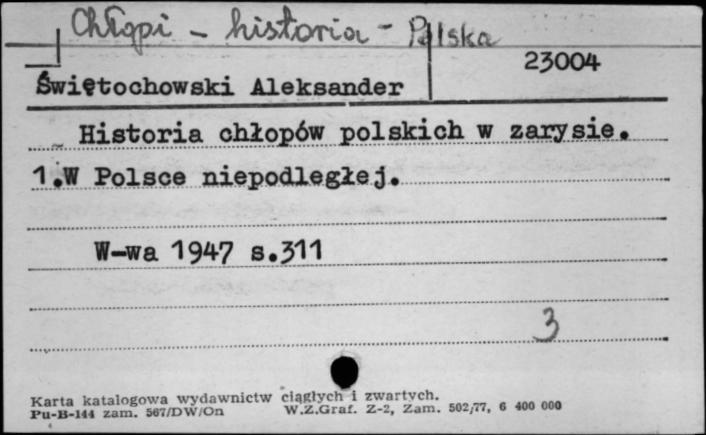 Chłopi - historia - Polska
23004
Świętochowski Aleksander
Historia chłopów polskich w zarysie.
1.W Polsce niepodległej.
W-wa 1947 s.311
3
Karta katalogowa wydawnictw ciągłych i zwartych.
Pu-B-144 zam. 567/DW/On W.Z.Graf. Z-2, Zam. 502/77, 6 400 000